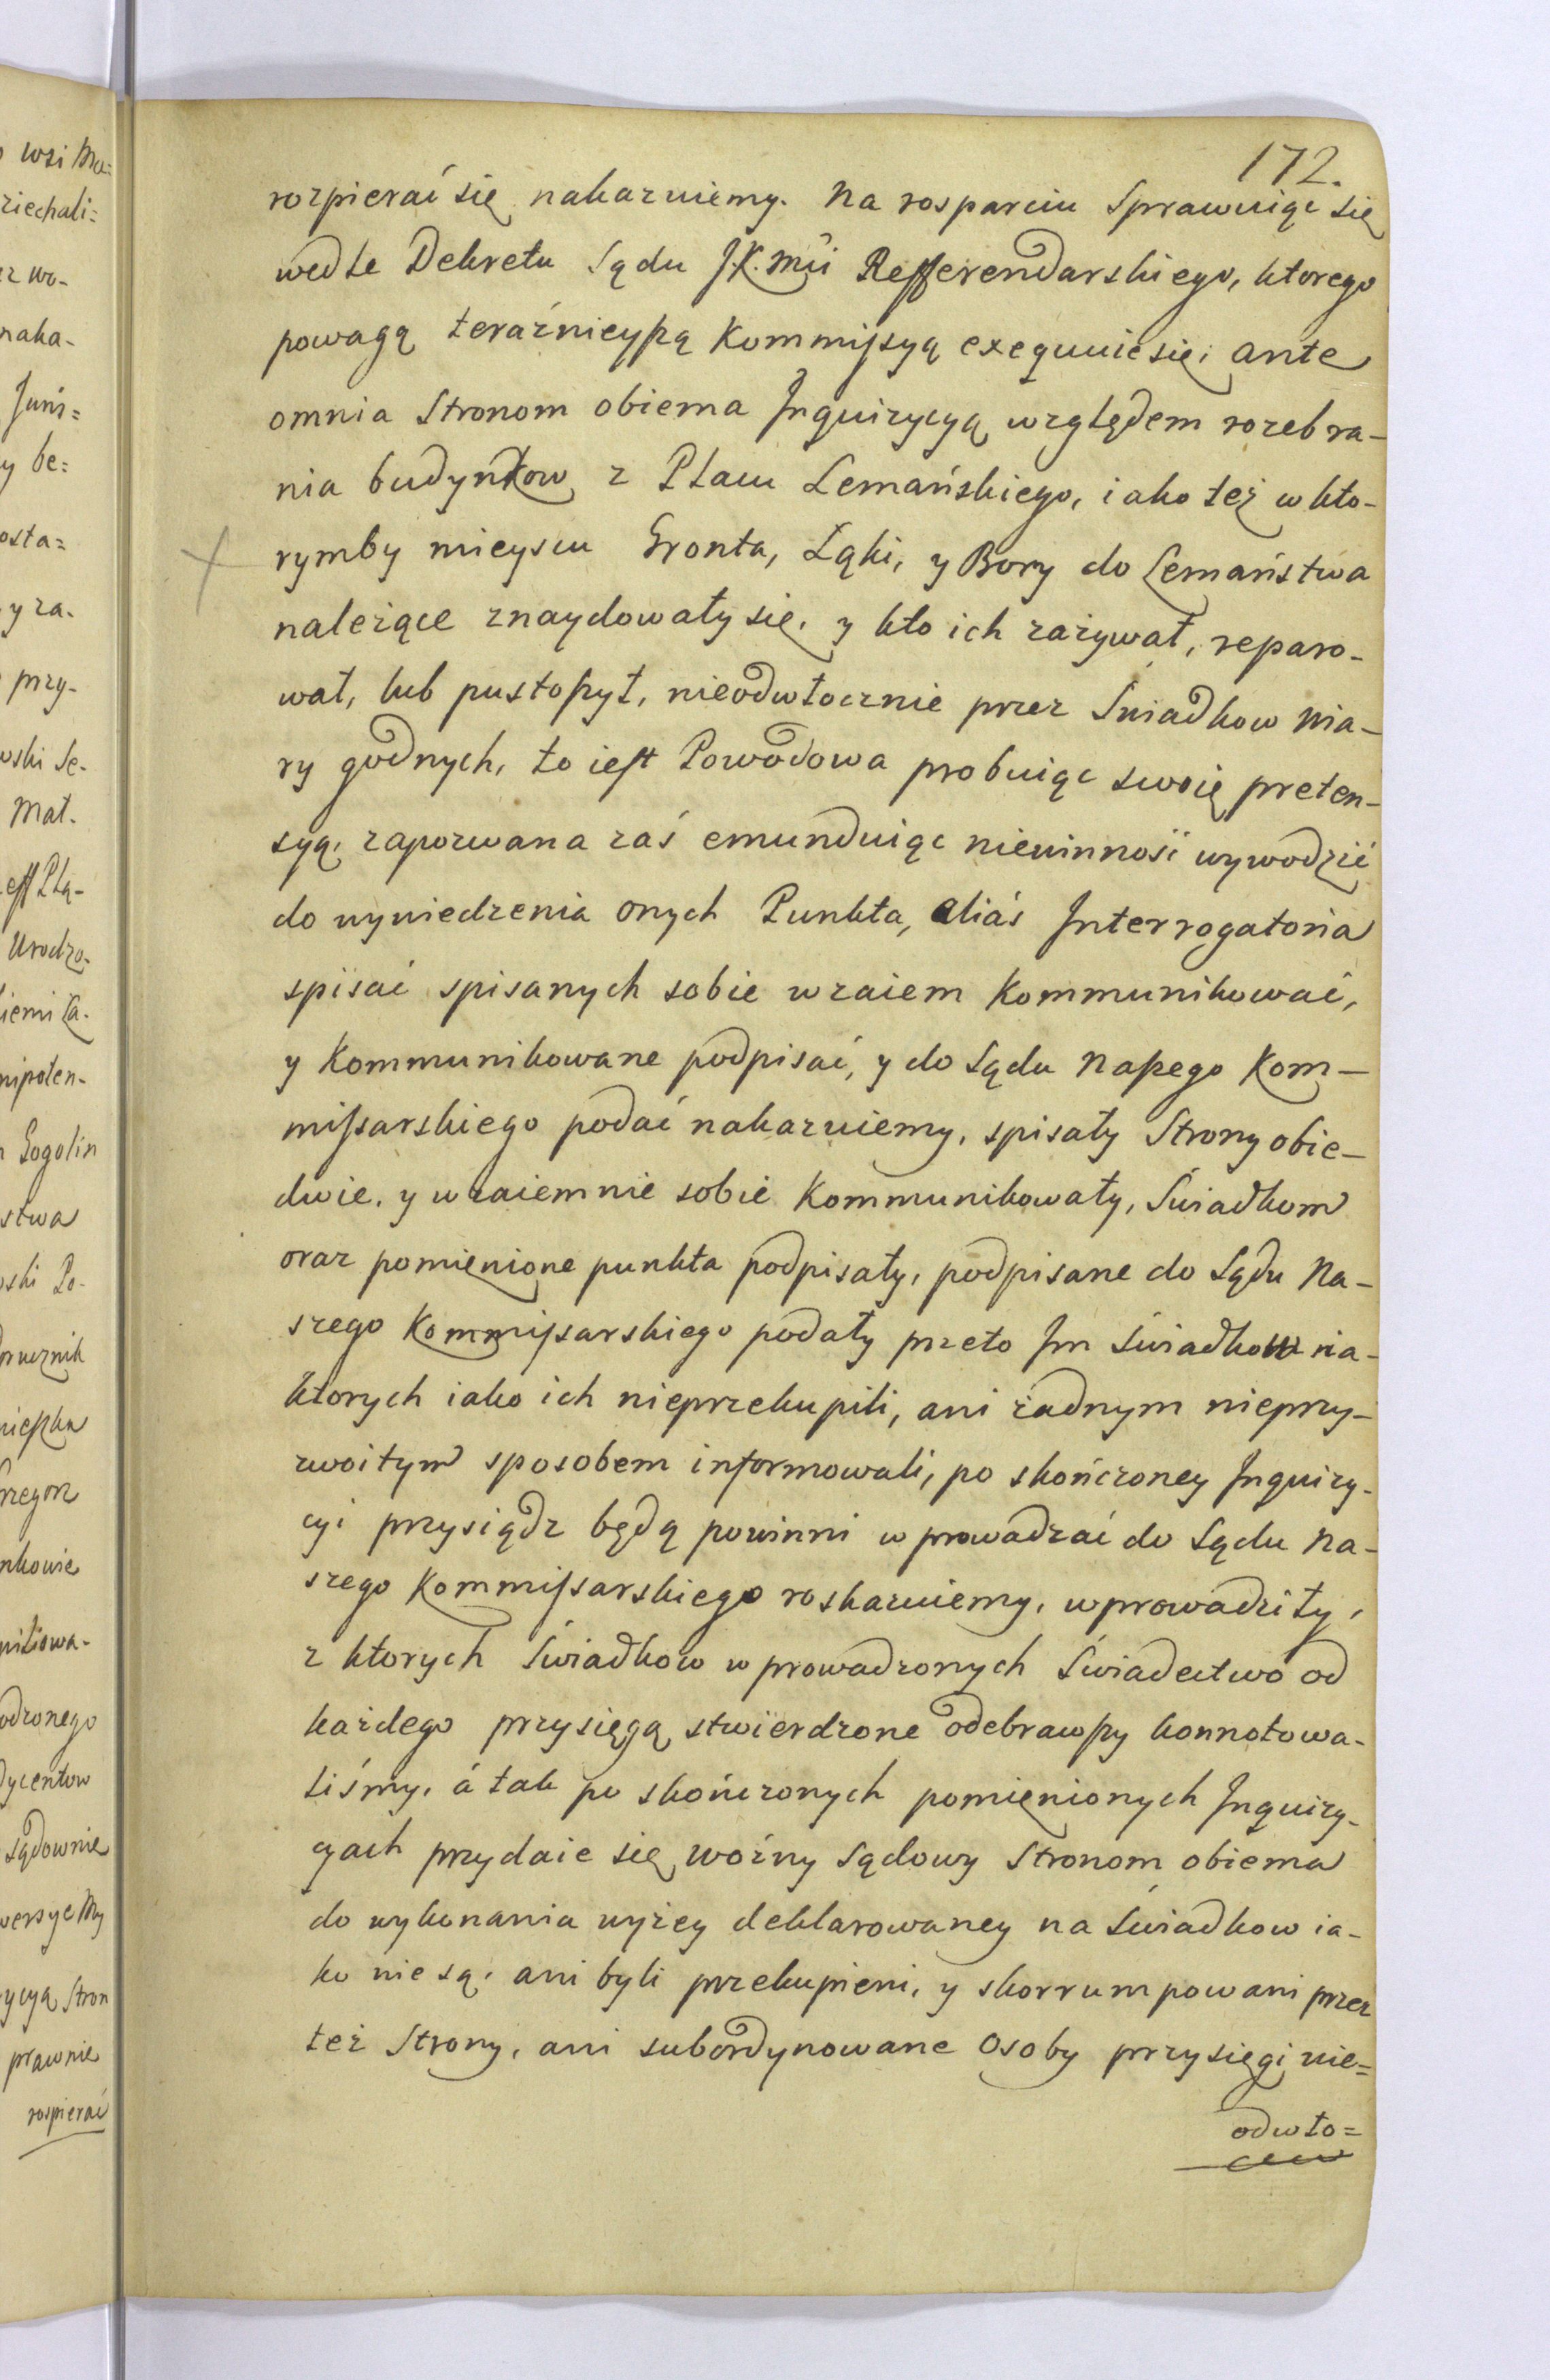 172.
rozpierać się nakazuiemy. Na rosparciu Sprawuiąc się
wedle Dekretu Sądu J.K.Mci Refferendarskiego, ktorego
powagą teraźnieyszą Kommissyą exequuie się, ante
omnia Stronom obiema Inquizycyą względem rozebra-
nia budynkow z Placu Lemańskiego, iako też w kto-
rymby mieyscu Gronta, Łąki, y Bory do Lemaństwa
należące znaydowały się, y kto ich zażywał, reparo-
wał, lub pustoszył, nieodwłocznie przez Świadkow wia-
ry godnych, to iest Powodowa probuiąc swoię preten-
syą, zapozwana zaś emunduiąc niewinność wywodzić
do wywiedzenia onych Punkta, aliás Interrogatoria
spisać spisanych sobie wzaiem kommunikować,
y kommunikowane podpisać, y do Sądu Naszego Kom-
missarskiego podać nakazuiemy, spisały Strony obie-
dwie, y wzaiemnie sobie kommunikowały, Świadkom
oraz pomienione punkta podpisały, podpisane do Sądu Na-
szego Kommissarskiego podały przeto Im Świadkow na-
ktorych iako ich nieprzekupili, ani żadnym nieprzy-
zwoitym sposobem informowali, po skończoney Inquizy-
cyi przysiądz będą powinni wprowadzać do Sądu Na-
szego Kommissarskiego roskazuiemy, wprowadziły,
z ktorych Świadkow wprowadzonych Świadectwo od
każdego przysięgą stwierdzone odebrawszy konnotowa-
liśmy, á tak po skończonych pomienionych Inquizy-
cyach przydaie się woźny Sądowy Stronom obiema
do wykonania wyżey deklarowaney na Świadkow ia-
ko nie są, ani byli przekupieni, y skorrumpowani przez
też Strony, ani subordynowane Osoby przysięgi nie=
odwło=